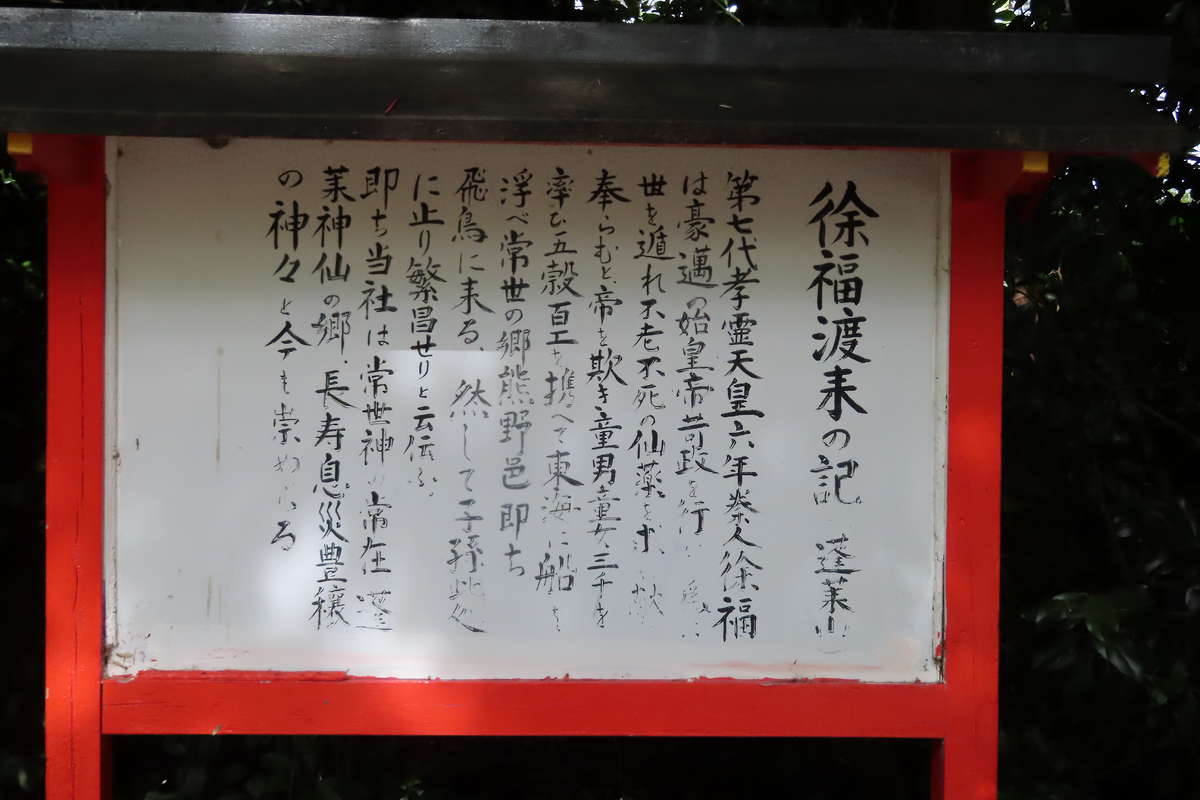 徐福渡来の記 蓬莱山
第七代孝霊天皇六年秦人徐福
は豪邁の始皇帝苛政を行い
世を遁れ不老不死の仙薬を求 献
奉らむと帝を欺き童男童女三千を
率ひ五穀百工を携へて東海に船を
浮べ常世の郷熊野邑即ち
飛鳥に来る、然して子孫此処
に止り繁昌せりと云伝ふ。
即ち当社は常世神の常在 蓬
莱神仙の郷、長寿息災豊穣
の神々と今も崇め る